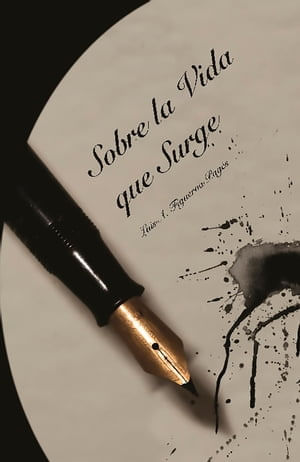 Sobre la Vida
que Surge
Luis A. Figueroa-Pagés